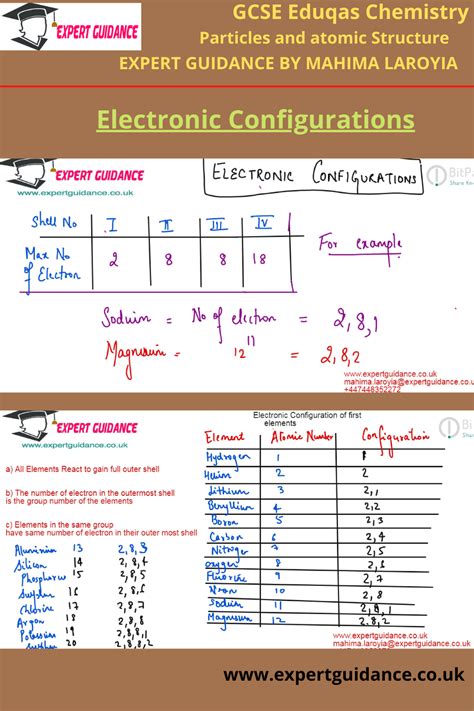 EXPERT GUIDANCE
GCSE Eduqas Chemistry
Particles and atomic Structure
EXPERT GUIDANCE BY MAHIMA LAROYIA
Electronic Configurations
EXPERT GUIDANCE
www.expertguidance.co.uk
ELECTRONIC CONFIGURATIONS
Shell No I II III IV
Max No of Electron 2 8 8 18
For example
Sodium = No of electron = 2,8,1
11
Magnesium = 12 = 2,8,2
www.expertguidance.co.uk
mahima.laroyia@expertguidance.co.uk
+447448352272
EXPERT GUIDANCE
www.expertguidance.co.uk
a) All Elements React to gain full outer shell
b) The number of electron in the outermost shell
is the group number of the elements
c) Elements in the same group
have same number of electron in their outer most shell
Aluminium 13 2,8,3
Silicon 14 2,8,4
Phosphorus 15 2,8,5
Sulphur 16 2,8,6
Chlorine 17 2,8,7
Argon 18 2,8,8
Potassium 19 2,8,8,1
20 2,8,8,2
Electronic Configuration of first
elements
Element Atomic Number Configuration
Hydrogen 1 1
Helium 2 2
Lithium 3 2,1
Beryllium 4 2,2
Boron 5 2,3
Carbon 6 2,4
Nitrogen 7 2,5
Oxygen 8 2,6
Fluorine 9 2,7
Neon 10 2,8
Sodium 11 2,8,1
Magnesium 12 2,8,2
www.expertguidance.co.uk
mahima.laroyia@expertguidance.co.uk
www.expertguidance.co.uk